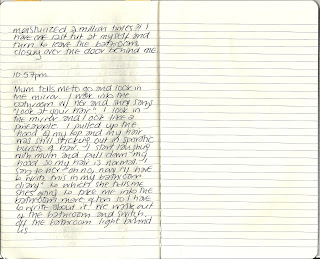 moisturized 2 million times!! I
have one last tut at myself and
turn to leave the bathroom,
closing over the door behind me.
10:57pm
Mum tells me to go and look in
the mirror. I walk into the
bathroom w/ her and she says
"Look at your hair." I look in
the mirror and look like a
pineapple. I pulled up the
hood of my top and my hair
was still sticking out in sporadic
bursts of hair. I start laughing
with mum and pull down my
hood so my hair is normal. I
say to her "oh no, now I'll have
to write this in my bathroom
diary" to which she tells me
she's going to take me into the
bathroom more often so I have
to write about it! We walk out
of the bathroom and switch
off the bathroom light behind
us.